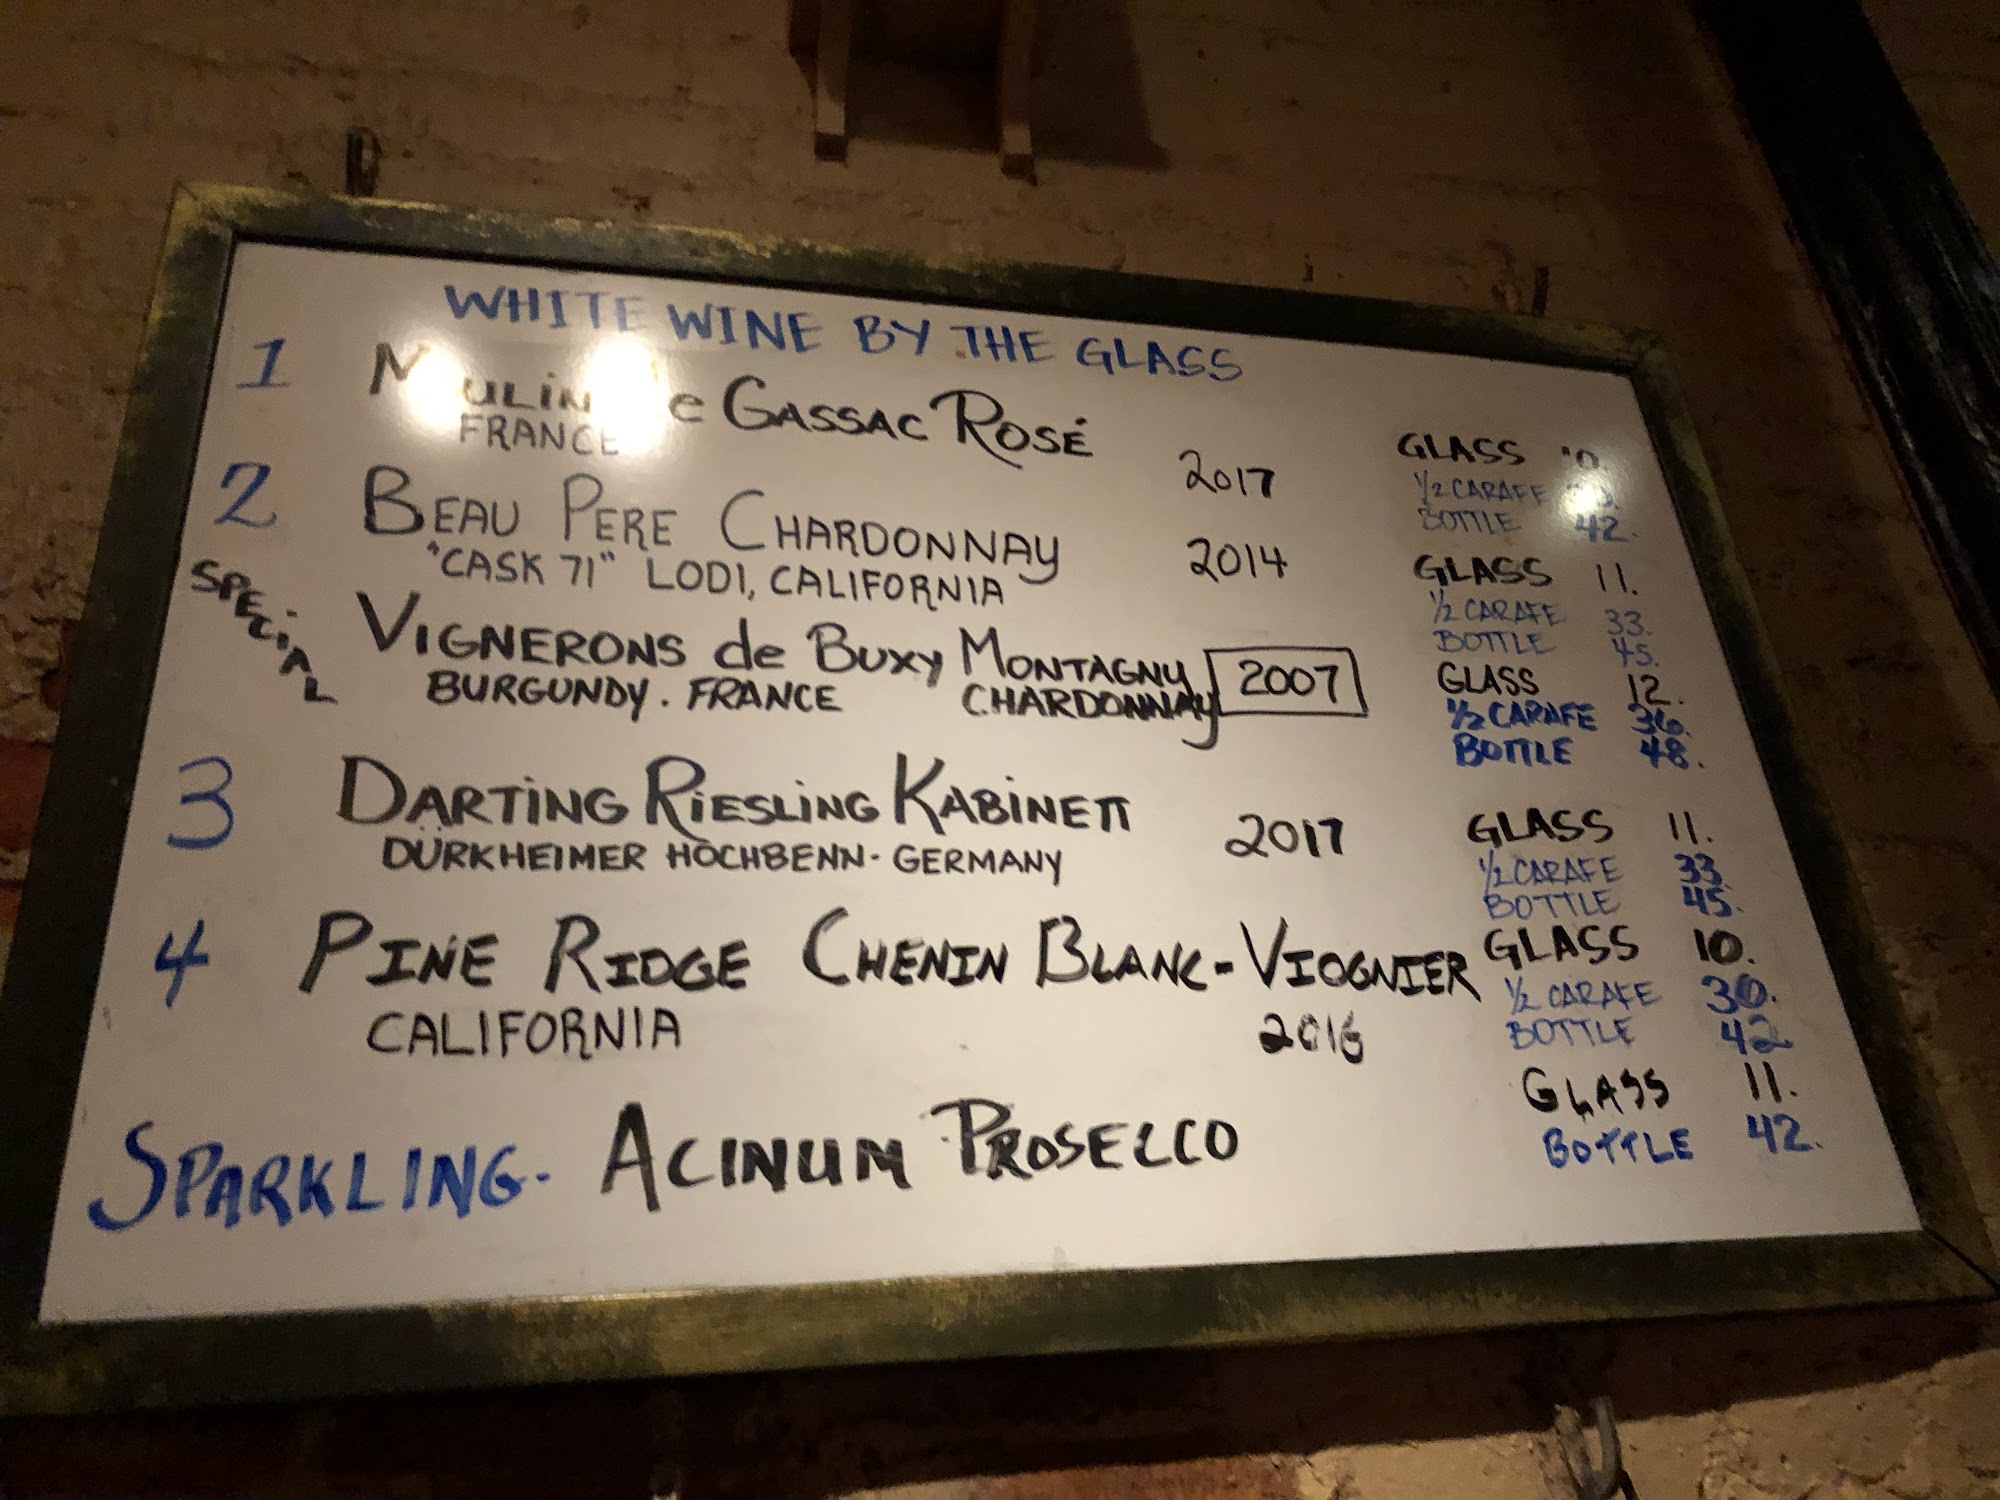 WHITE WINE BY THE GLASS
1 GASSAC ROSÉ
FRANCE 2017 GLASS 10.
1/2 CARAFE
BOTTLE 42.
2 BEAU PERE CHARDONNAY 2014 GLASS 11.
"CASK 71" LODI, CALIFORNIA 1/2 CARAFE 33.
BOTTLE 45.
SPECIAL VIGNERONS de BUXY MONTAGNY 2007 GLASS 12.
BURGUNDY. FRANCE CHARDONNAY 1/2 CARAFE 36.
BOTTLE 48.
3 DARTING RIESLING KABINETT 2017 GLASS 11.
DÜRKHEIMER HOCHBENN - GERMANY 1/2 CARAFE 33.
BOTTLE 45.
4 PINE RIDGE CHENIN BLANC - VIOGNIER GLASS 10.
CALIFORNIA 2016 1/2 CARAFE 30.
BOTTLE 42
SPARKLING - ACINUM PROSECCO GLASS 11.
BOTTLE 42.